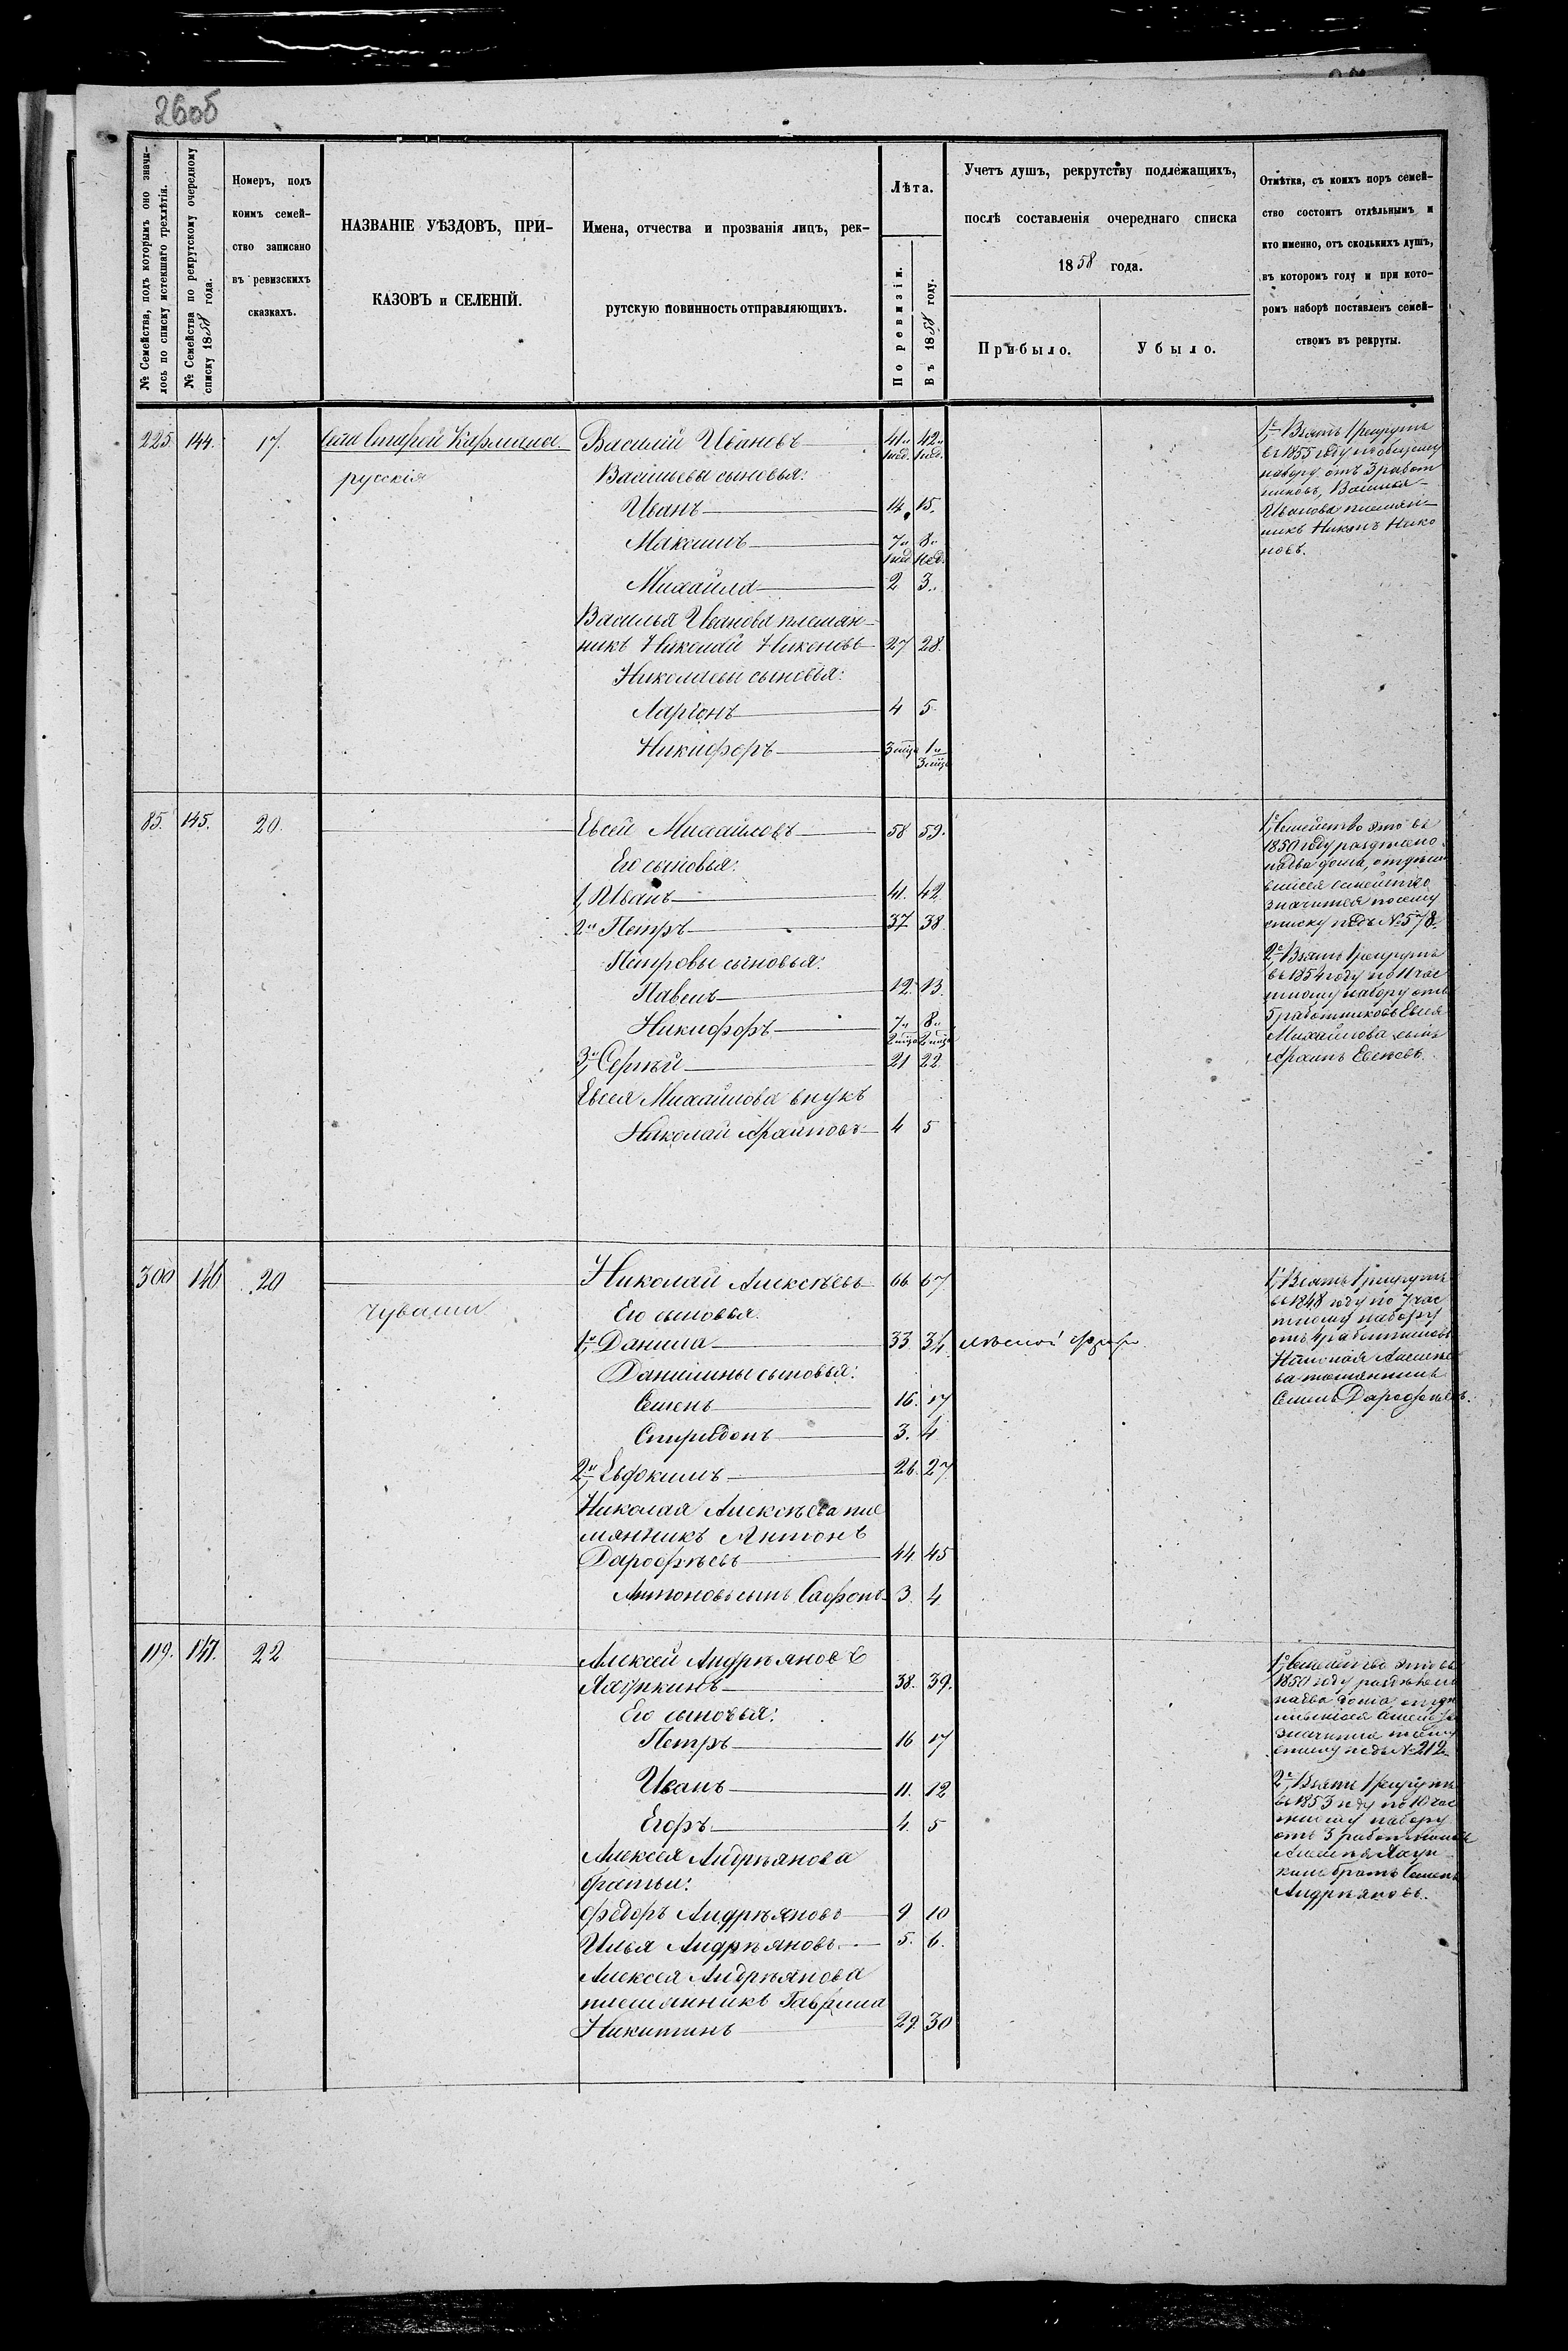 260об
№ Семейства, подъ которымъ оно значи-
лось по списку истекшаго трехлѣтія.
№ Семейства по рекрутскому очередному
списку 1858 года.
Номеръ, подъ
коимъ семей-
ство записано
въ ревизскихъ
сказкахъ.
НАЗВАНІЕ УѢЗДОВЪ, ПРИ-
КАЗОВЪ и СЕЛЕНІЙ.
Имена, отчества и прозванія лицъ, рек-
рутскую повинность отправляющихъ.
Лѣта.
По ревизіи.
Въ 1858 году.
Учетъ душъ, рекрутству подлежащихъ,
послѣ составленія очереднаго списка
1858 года.
Прибыло.
Убыло.
Отмѣтка, съ коихъ поръ семей-
ство состоитъ отдѣльнымъ и
кто именно, отъ сколькихъ душъ,
въ которомъ году и при кото-
ромъ наборѣ поставленъ семей-
ствомъ въ рекруты.
225. 144. 17. Села Старой Кармалы. Василій Ивановъ 41 42
1 нед. 1 нед.
русскія
Васильевы сыновья:
Иванъ 14 15.
Максимъ 7 8
1 нед. 1 нед.
Михайла 2 3
Василья Иванова племян-
никъ Николай Никоновъ 27 28.
Николаевы сыновья:
Ларіонъ 4 5
Никифоръ 3 мѣца 1
3 мѣца
1е, Взятъ 1 рекрутъ
въ 1855 году по общему
набору отъ 3 работ
никовъ, Василья
Иванова племян-
никъ Никонъ Нико
новъ.
85. 145. 20. Евсей Михайловъ 58 59.
Его сыновья:
1, Иванъ 41. 42.
2й Петръ 37 38
Петровы сыновья:
Павелъ 12. 13.
Никифоръ 7 8
2 мѣца 2 мѣца
3й, Сергѣй 21 22.
Евсея Михайлова внукъ
Николай Храмновъ 4 5
1е, Семейство это въ
1850 году раздѣлено
на два дома, отдѣли
вшися семейство
значится по сему
списку подъ № 578.
2е, Взятъ 1 рекрутъ
въ 1854 году по 11 час
тному набору отъ
5 работниковъ Евсея
Михайлова сынъ
Евсѣевъ.
300 146 20 Николай Алексѣевъ 66 67
чуваши
Его сыновья.
1й, Данила 33 34
Данилины сыновья:
Семенъ 16. 17
Спиридонъ 3. 4
2й, Евдокимъ 26. 27
Николая Алексѣева пле
мянникъ Антонъ
Дарофѣевъ 44. 45
Антоновъ сынъ Сафонъ 3. 4.
1е, Взятъ 1 рекрутъ
въ 1848 году по 7 час
тному набору
отъ 4 работниковъ
Николая Алексѣе
ва племянникъ
Семенъ Дарофѣевъ.
119. 147. 22 Алексѣй Андрѣяновъ
38. 39.
Его сыновья:
Петръ 16 17
Иванъ 11. 12
Егоръ 4. 5
Алексѣя Андрѣянова
братьи:
Федоръ Андрѣяновъ 9 10
Илья Андрѣяновъ 5. 6.
Алексѣя Андрѣянова
племянникъ Гаврила
Никитинъ 29 30
1е, Семейство это въ
1850 году раздѣлено
на два дома, отдѣ
лившися семейство
значится по сему
списку подъ № 212.
2е, Взятъ 1 рекрутъ
въ 1853 году по 10 час
тному набору
отъ 3 работниковъ
братъ Семенъ
Андрѣяновъ.